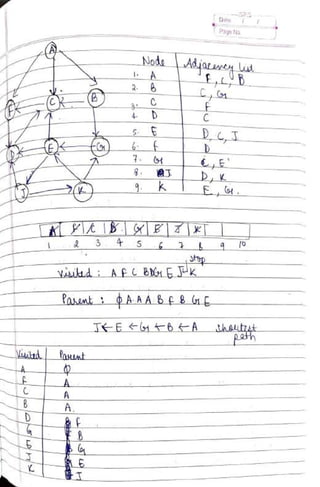 Date / /
Page No.
A
F C B
D E G
J K
Node Adjacency list
1. A F, C, B
2. B C, G
3. C F
4. D C
5. E D, C, J
6. F D
7. G C, E
8. J D, K
9. K E, G.
A F C B D G E J K
1 2 3 4 5 6 7 8 9 10
stop
Visited : A F C B D G E J K
Parent : ϕ A A A B F B G E
J ← E ← G ← B ← A shortest
path
Visited Parent
A ϕ
F A
C A
B A.
D F
G B
E G
J E
K J